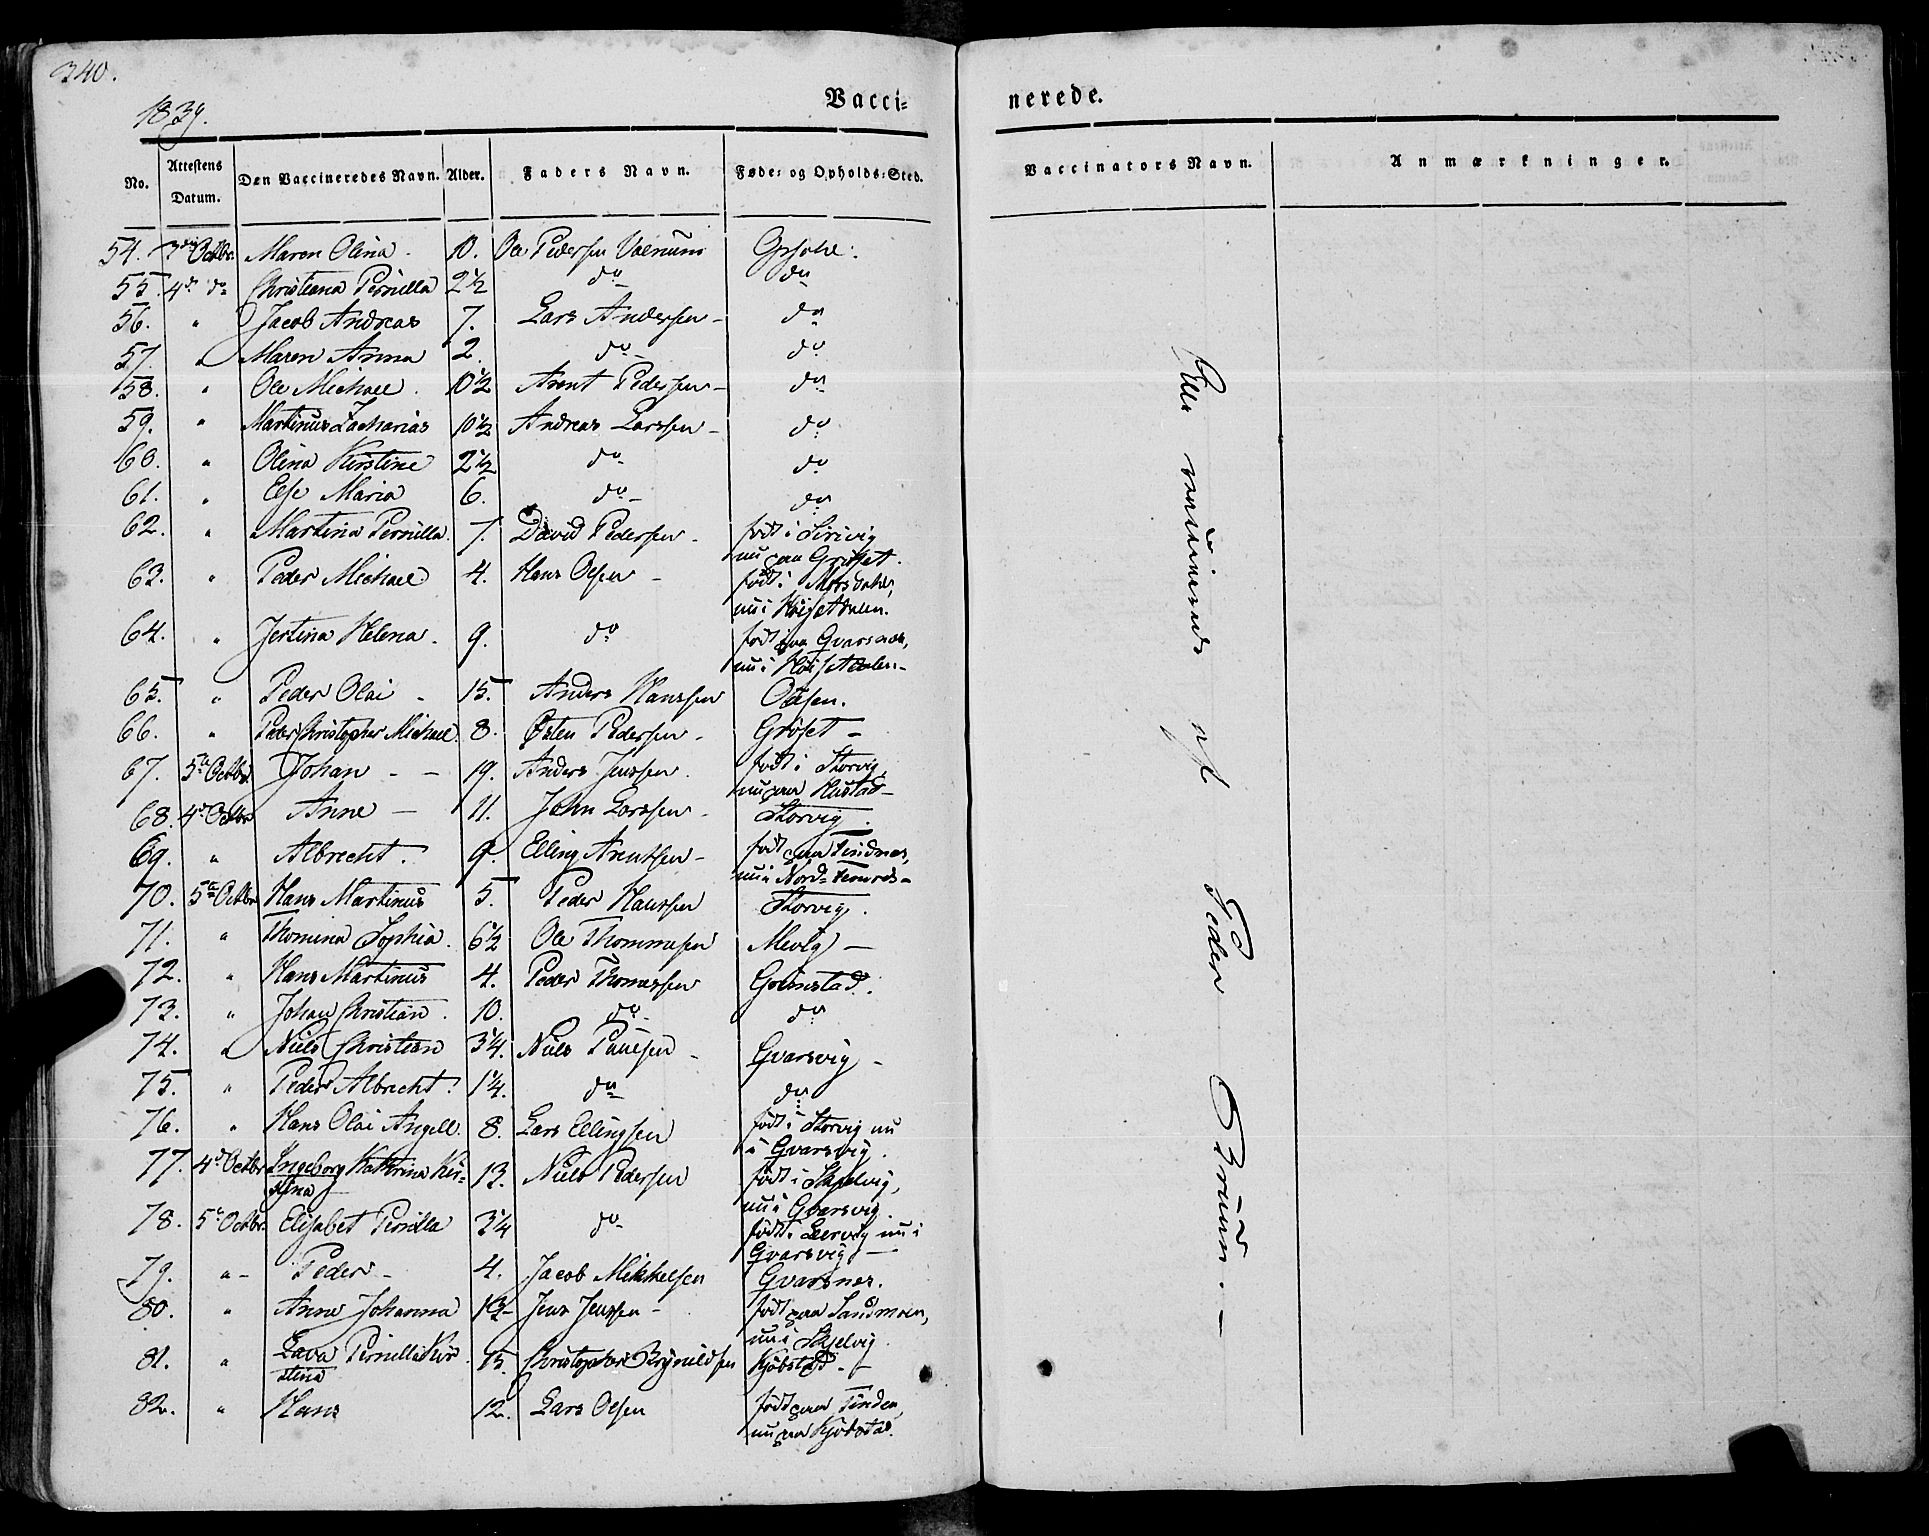 340.
1839.
Vacci=
nerede.
No. Attestens Datum. Den Vaccineredes Navn. Alder. Faders Navn. Føde= og Opholds=Sted.
Vaccinators Navn. Anmærkninger.
54. 3die Octbr. Maren Olina. 10. Ole Pedersen
55. 4de do Christiana Pernilla 2½ do do
56. " Jacob Andreas 7. Lars Andersen - do
57. " Maren Anna 2. do do
58. " Ole Michael. 10½ Arent Pedersen - do
59. " Martinus Zacharias 10½ Andreas Larssen - do
60. " Olina Kirstine 2½ do do
61. " Else Maria 6. do do
62. " Martina Pernilla. 7. David Pedersen - født i
nu paa Grøset.
63. " Peder Michael 4. Hans Olsen - født i
nu i
64. " Helena. 9. do født paa Gvarsnes,
nu i
65. " Peder Olai - 15. Anders Hanssen
66. " Peder Christopher Michael. 8. Østen Pedersen - Grøset -
67. 5te Octbr. Johan - - 19. Anders Jenssen. født i Storvig,
nu paa Hustad -
68. 4de Octbr Anne - 11. John Larssen - Storvig.
69. " Albrecht. 9. Elling Arentsen - født paa Tindnes,
nu i
70. 5te Octbr Hans Martinus 5. Peder Hanssen Storvig.
71. " Thomina Sophia. 6½ Ole Thommesen Mevig -
72. " Hans Martinus 4. Peder Thomessen Grimstad.
73. " Johan Christian. 10. do do
74. " Niels Christian 3¼. Niels Paulsen - Gvarsvig -
75. " Peder Albrecht. 1¼. do do
76. " Hans Olai Angell. 8. Lars Ellingsen født i Storvig nu
i Gvarsvig.
77. 4de Octbr Ingeborg Kathrina Kir=
stina 13. Niels Pedersen født i Skjelvig,
nu i Gvarsvig.
78. 5te Octbr. Elisabet Pernilla 3¼ do født i Leervig nu i
Gvarsvig -
79. " - Peder - 4. Jacob Mikkelsen Gvarsnes.
80. " Anne Johanna 12 - Jens Jenssen - født paa Sandmoen,
nu i Skjelvig.
81. " Lava Pernilla Kir
stina 15. Christopher Brynildsen Kjøbstad - -
82. " Hans 12. Lars Olsen født paa Tinden,
nu paa Kjøbstad.
Alle vaccinerede af Peder Bruun. -